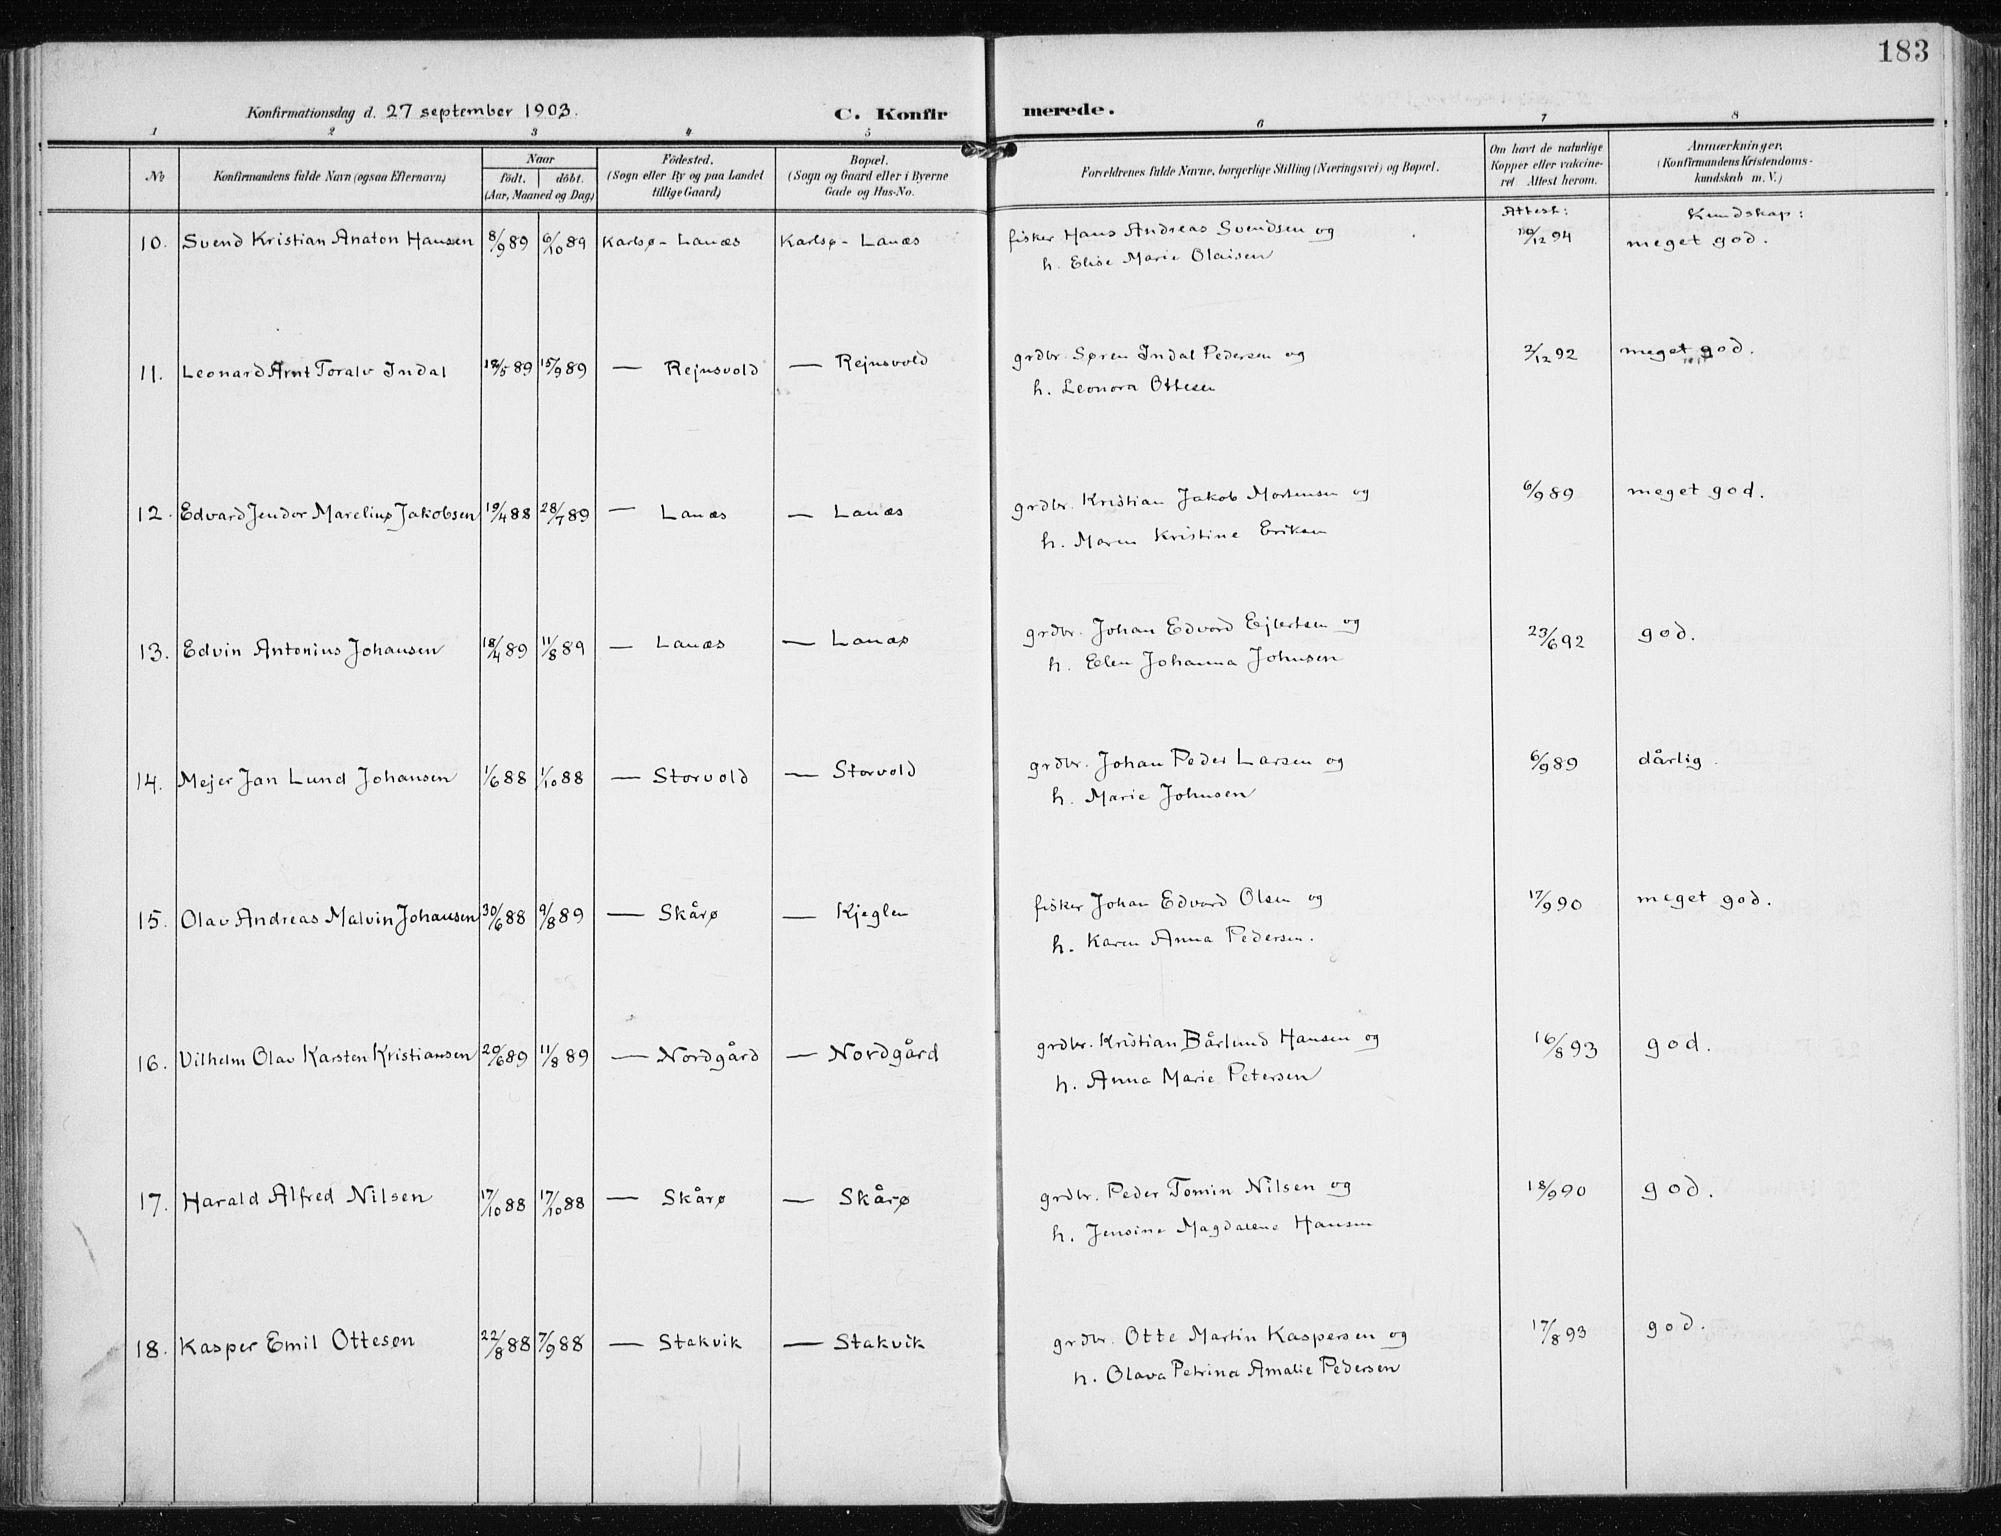 183
Konfirmationsdag d. 27 september 1903. C. Konfirmerede.
1 2 3 4 5 6 7 8
No Konfirmandens fulde Navn (ogsaa Efternavn) Naar födt. döbt. (Aar, Maaned og Dag) Födested. (Sogn eller By og paa Landet tillige Gaard) Bopæl. (Sogn og Gaard eller i Byerne Gade og Hus-No. Forældrenes fulde Navne, borgerlige Stilling (Næringsvei) og Bopæl. Om havt de naturlige Kopper eller vakcineret Attest herom. Anmærkninger. (Konfirmandens Kristendomskundskab m. V.)
Attest: Kundskap:
10. Svend Kristian Anaton Hansen 8/9 89 6/10 89 Karlsø - Lanæs Karlsø - Lanæs fisker Hans Andreas Svendsen og 10/12 94 meget god.
h. Elise Marie Olaisen
11. Leonard Arnt Toralv Indal 12/5 89 15/9 89 — Rejnsvold — Rejnsvold grdbr. Søren Indal Pedersen og 2/12 92 meget god.
h. Leonora Ottesen
12. Edvard Jendor Marelius Jakobsen 19/4 88 28/7 89 — Lanæs — Lanæs grdbr. Kristian Jakob Mortensen og 6/9 89 meget god.
h. Maren Kristine Eriksen
13. Edvin Antonius Johansen 18/4 89 11/8 89 — Lanæs — Lanæs grdbr. Johan Edvard Ejlertsen og 23/6 92 god.
h. Elen Johanna Johnsen
14. Mejer Jan Lund Johansen 1/6 88 1/10 88 — Storvold — Storvold grdbr. Johan Peder Larsen og 6/9 89 dårlig.
h. Marie Johnsen
15. Olav Andreas Malvin Johansen 30/6 88 9/8 89 — Skårø — Kjeglen fisker Johan Edvard Olsen og 17/9 90 meget god.
h. Karen Anna Pedersen.
16. Vilhelm Olav Karsten Kristiansen 20/6 89 11/8 89 — Nordgård — Nordgård grdbr. Kristian Bårlund Hansen og 16/8 93 god.
h. Anna Marie Petersen
17. Harald Alfred Nilsen 17/10 88 17/10 88 — Skårø — Skårø grdbr. Peder Tomin Nilsen og 18/9 90 god.
h. Jensine Magdalene Hansen
18. Kasper Emil Ottesen 22/8 88 7/9 88 — Stakvik — Stakvik grdbr. Otte Martin Kaspersen og 17/8 93 god.
h. Olava Petrina Amalie Pedersen